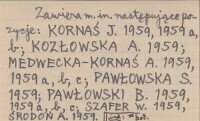 Zawiera m. in. następujące po-
zycje: KORNAŚ J. 1959, 1959 a,
b; KOZŁOWSKA A. 1959;
MEDWECKA-KORNAŚ A. 1959,
1959 a, b, c; PAWŁOWSKA S.
1959; PAWŁOWSKI B. 1959,
1959 a, b, c; SZAFER W. 1959,
ŚRODOŃ A. 1959.